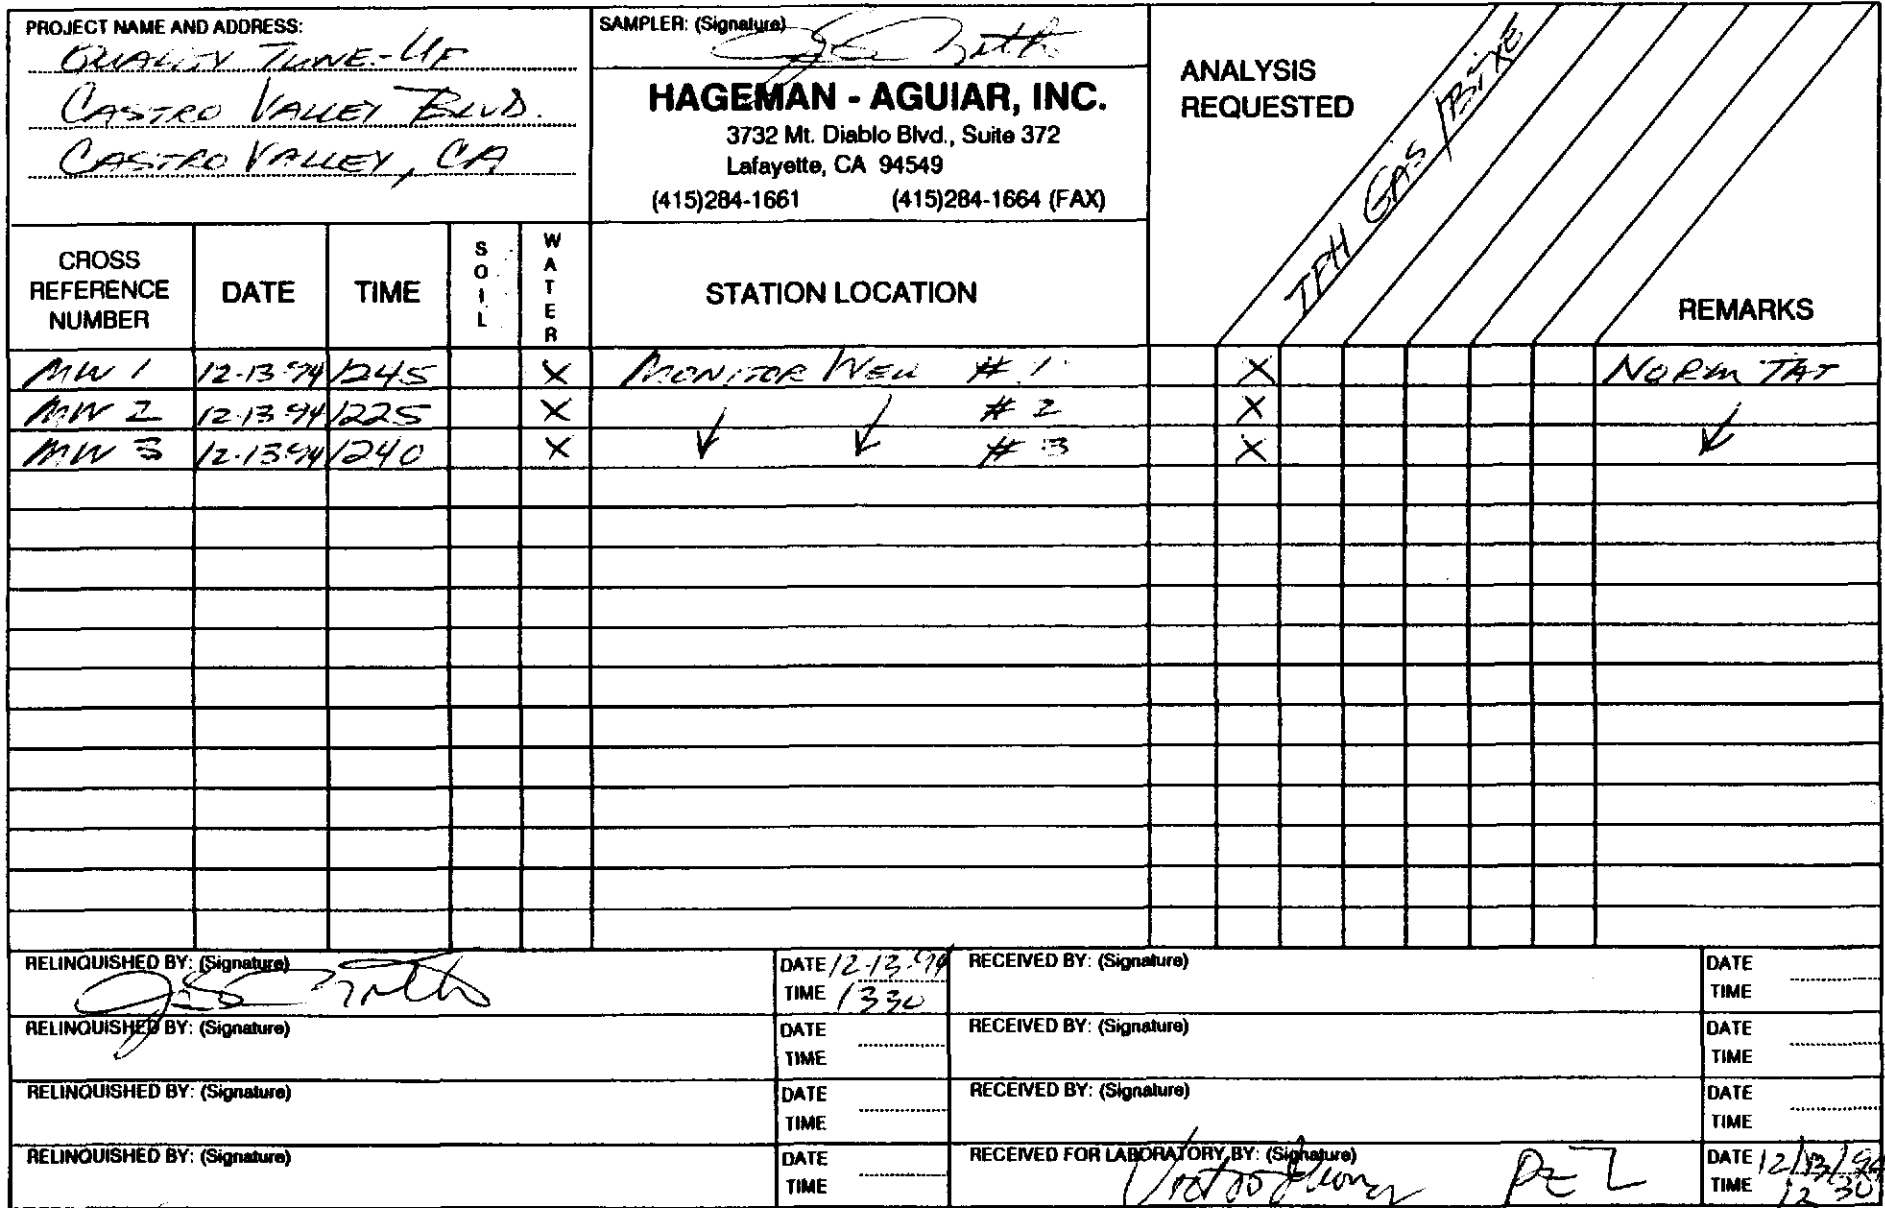 PROJECT NAME AND ADDRESS:
QUALITY TUNE-UP
CASTRO VALLEY BLVD.
CASTRO VALLEY, CA
SAMPLER: (Signature)
HAGEMAN - AGUIAR, INC.
3732 Mt. Diablo Blvd., Suite 372
Lafayette, CA 94549
(415)284-1661 (415)284-1664 (FAX)
ANALYSIS
REQUESTED
TPH GAS/BTXE
CROSS
REFERENCE
NUMBER
DATE
TIME
SOIL
WATER
STATION LOCATION
REMARKS
MW 1 12-13-94 1245 X MONITOR WELL # 1 X NORM TAT
MW 2 12-13-94 1225 X # 2 X
MW 3 12-13-94 1240 X # 3 X
RELINQUISHED BY: (Signature)
DATE 12-13-94
TIME 1330
RECEIVED BY: (Signature)
DATE
TIME
RELINQUISHED BY: (Signature)
DATE
TIME
RECEIVED BY: (Signature)
DATE
TIME
RELINQUISHED BY: (Signature)
DATE
TIME
RECEIVED BY: (Signature)
DATE
TIME
RELINQUISHED BY: (Signature)
DATE
TIME
RECEIVED FOR LABORATORY BY: (Signature)
DATE 12/13/94
TIME 12 30